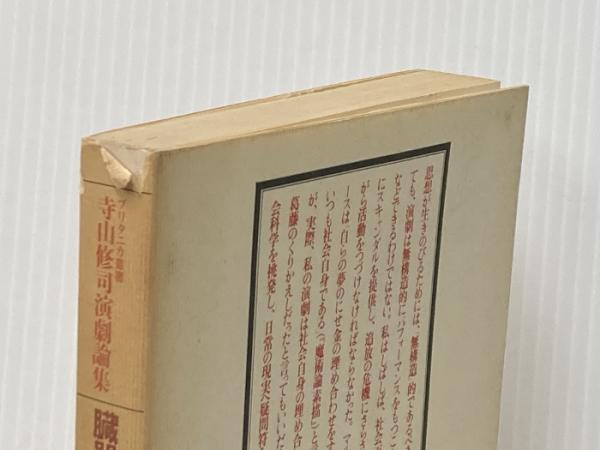 ブリタニカ叢書
寺山修司演劇論集
臓器
思想が生きのびるためには、「無構造」的であるべき
ても、演劇は無構造的にパフォーマンスをもつこ
などできるわけではない。私はしばしば、社会が
にスキャンダルを提供し、追放の危機にさらさ
がら活動をつづけなければならなかった。マル
ースは「自らの夢のにせ金の埋め合わせをす
いつも社会自身である」（『魔術論素描』）と言
が、実際、私の演劇は社会自身の埋め合
葛藤のくりかえしだったと言ってもいいだ
会科学を挑発し、日常の現実へ疑問符